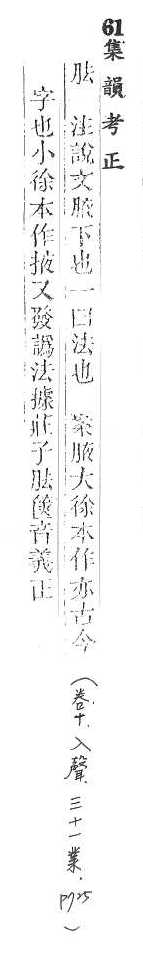 61集韻考正
胠　注說文腋下也一曰法也　案腋大徐本作亦古今
字也小徐本作掖又發譌法據莊子胠篋音義正
（卷十．入聲三十一業．p725）